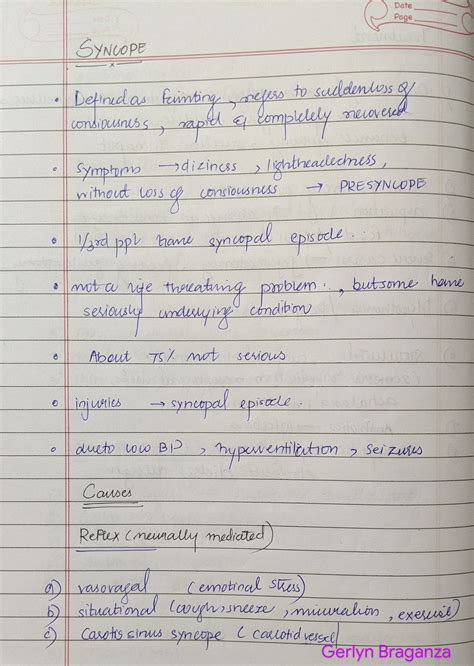 Date
Page
SYNCOPE
• Defined as fainting, refers to sudden loss of
consiousness, rapid & completely recovered
• Symptoms → diziness, lightheadedness,
without loss of consiousness → PRESYNCOPE
• 1/3rd ppl have syncopal episode.
• not a life threatning problem., but some have
seriously underlying condition
• About 75% not serious
• injuries → syncopal episode.
• due to low BP, hyperventilation, seizures
Causes
Reflex (neurally mediated)
a) vasovagal (emotinal stress)
b) situational (cough, sneeze, micuration, exercise)
c) Carotis sinus syncope (carotid vessel)
Gerlyn Braganza